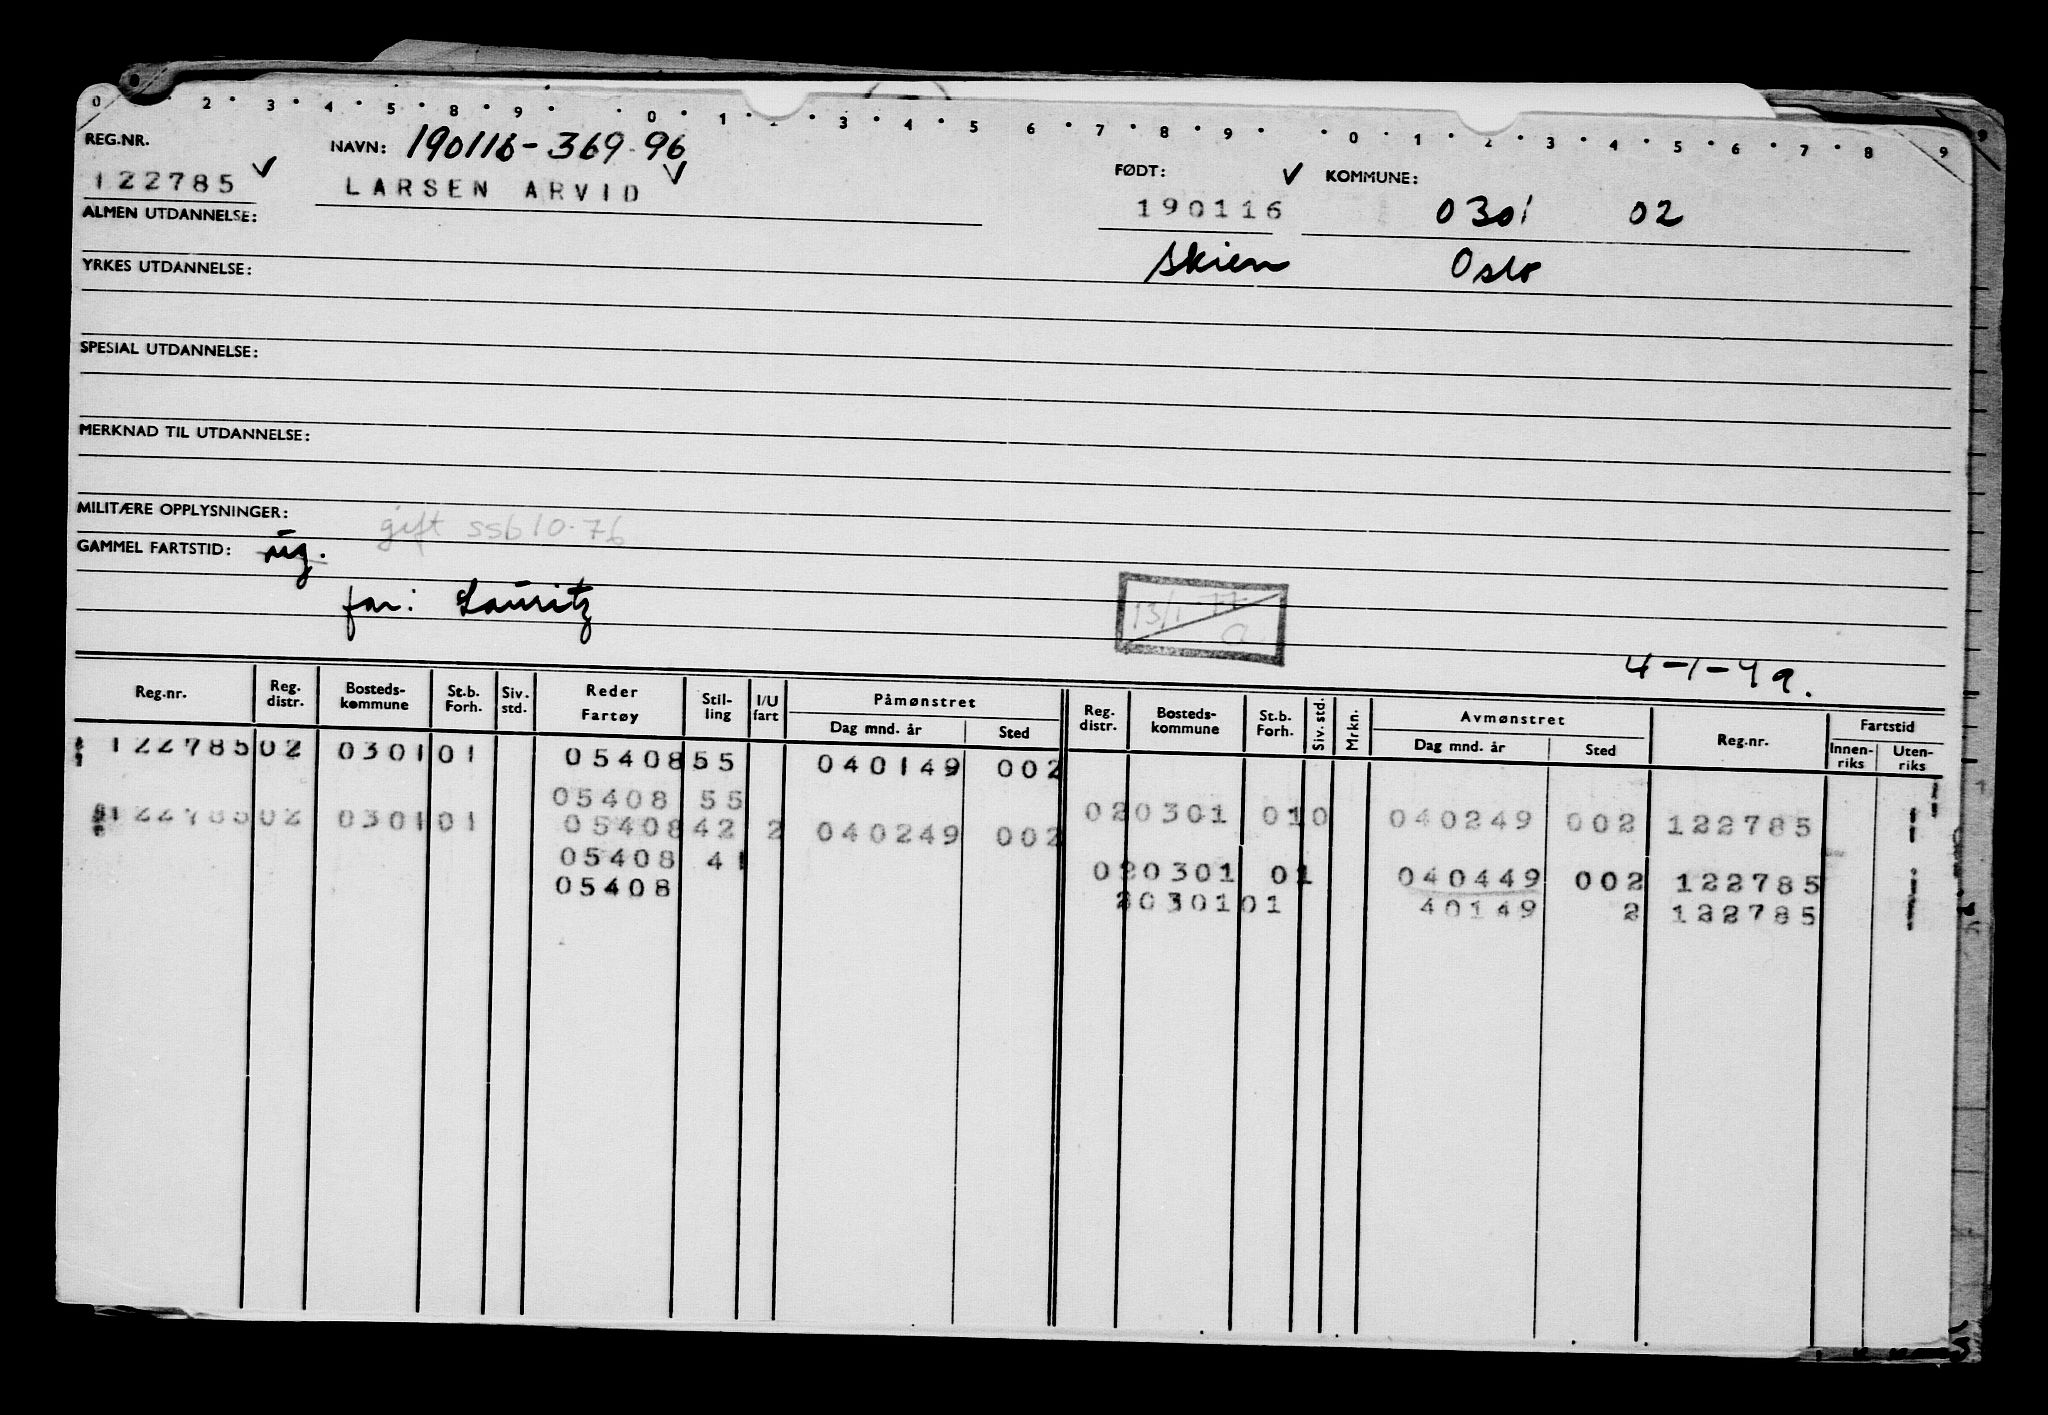 0 · 2 · 3 · 4 · 5 · 8 · 9 · · 0 · 1 · 2 · 3 · 4 · 5 6 · 7 · 8 · 9 · · 0 · 1 · 2 · 3 · 4 · 5 · 6 · 7 · 8 9
REG.NR. NAVN: 190116-369-96 FØDT: KOMMUNE:
122785 LARSEN ARVID 190116 0301 02
ALMEN UTDANNELSE:
Skien Oslo
YRKES UTDANNELSE:
SPESIAL UTDANNELSE:
MERKNAD TIL UTDANNELSE:
MILITÆRE OPPLYSNINGER: gift ssb 10-76
GAMMEL FARTSTID: ug.
far: Lauritz
13/1 77
4-1-49.
Reg.nr. Reg. distr. Bosteds-kommune St.b. Forh. Siv. std. Reder Fartøy Stil-ling I/U fart Påmønstret Dag mnd. år Sted Reg. distr. Bosteds-kommune St.b. Forh. Siv. std. Mrkn. Avmønstret Dag mnd. år Sted Reg.nr. Fartstid Innen-riks Uten-riks
122785 02 0301 01 05408 55 040149 002
05408 55 02 0301 01 0 040249 002 122785
122785 02 0301 01 05408 42 2 040249 002
05408 41 02 0301 01 040449 002 122785
05408 2 0301 01 40149 2 122785